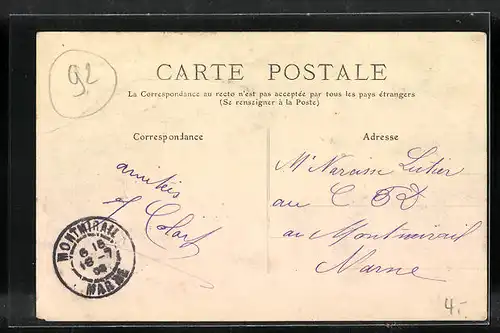 92
CARTE POSTALE
La Correspondance au recto n'est pas acceptée par tous les pays étrangers
(Se renseigner à la Poste)
Correspondance
Adresse
amitiés
Mr Narcisse
au C
au Montmirail
Marne
MONTMIRAIL
6 15
16 - 7
08
MARNE
4.-